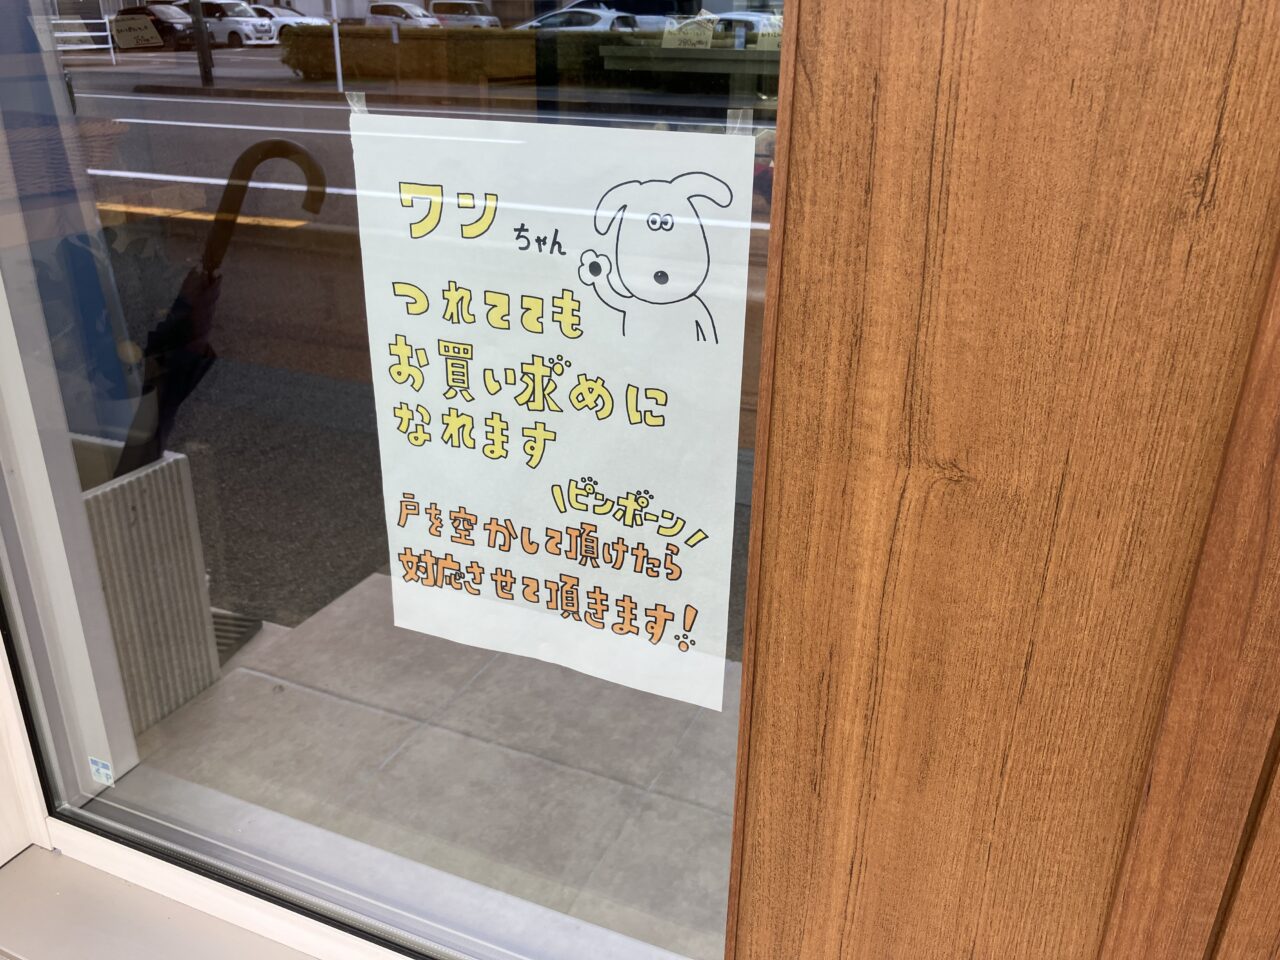 ワンちゃん
つれてても
お買い求めに
なれます
\ピンポーン/
戸を空かして頂けたら
対応させて頂きます!